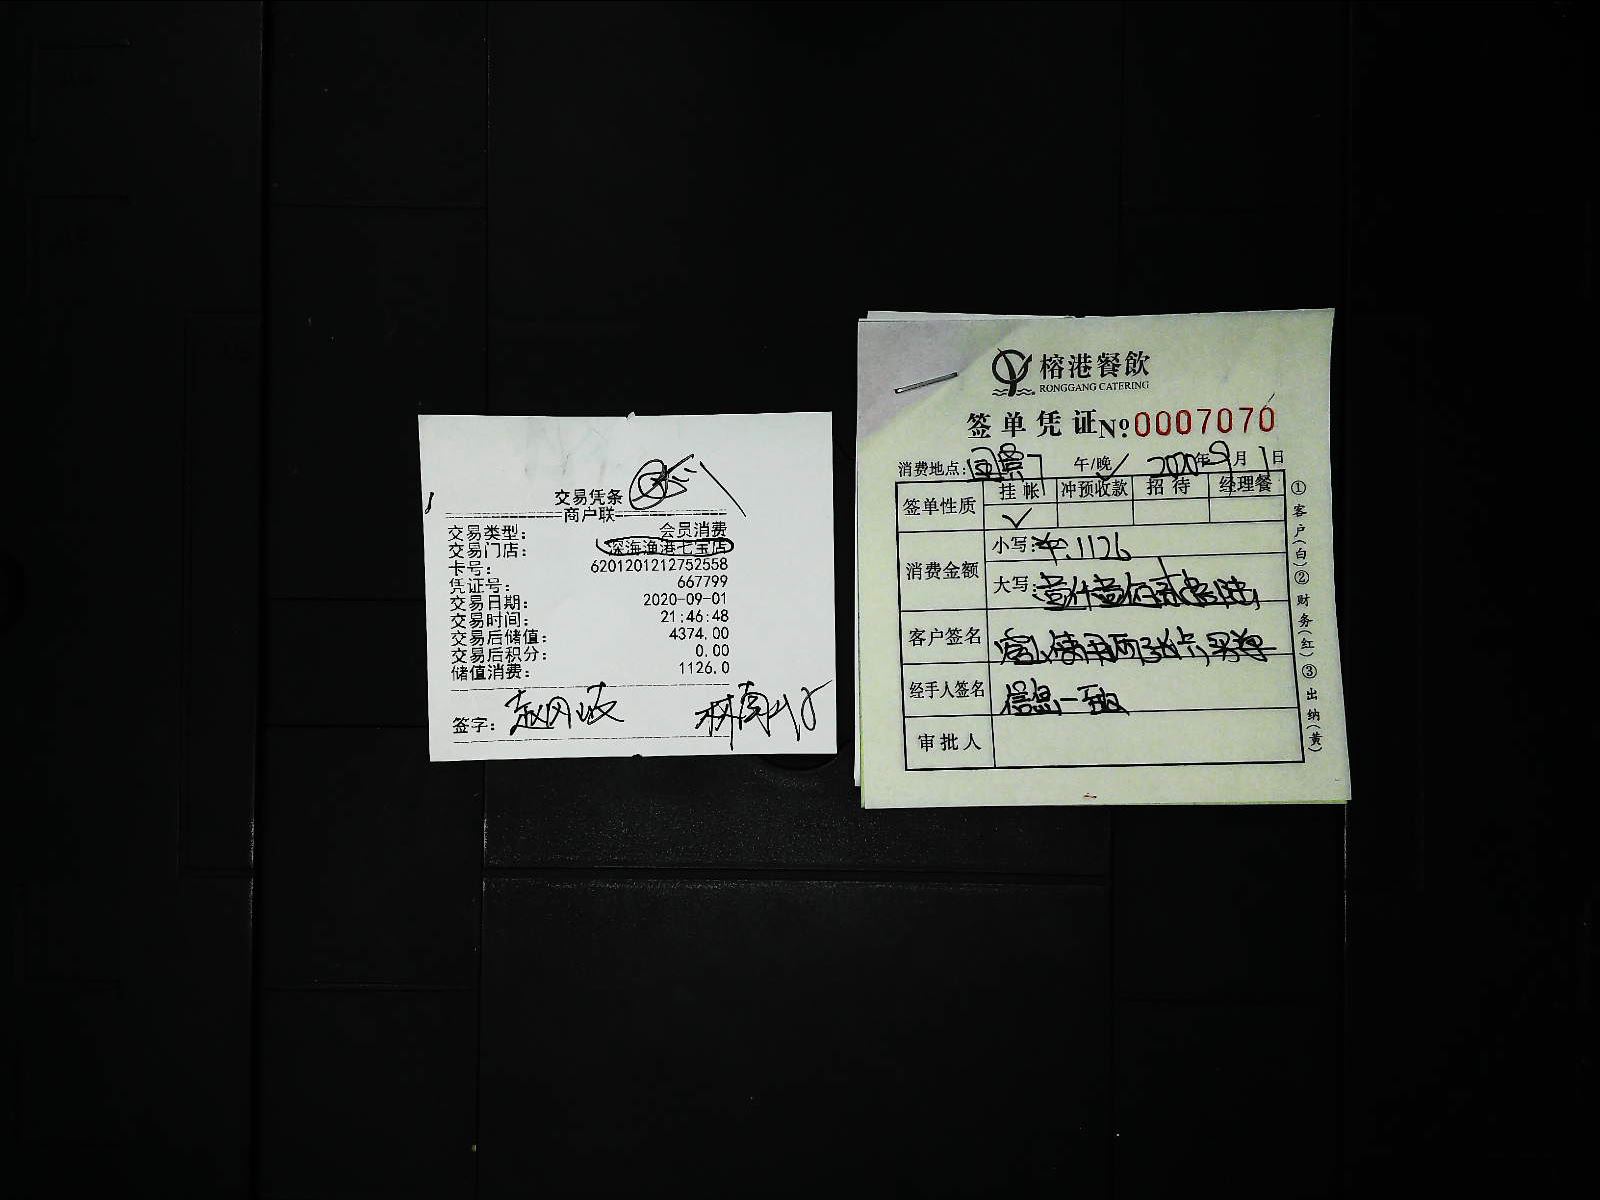 交易凭条
商户联
交易类型： 会员消费
交易门店： 深海渔港七宝店
卡号： 6201201212752558
凭证号： 667799
交易日期： 2020-09-01
交易时间： 21:46:48
交易后储值： 4374.00
交易后积分： 0.00
储值消费： 1126.0
签字：
榕港餐飲
RONGGANG CATERING
签单凭证 No: 0007070
消费地点: 午/晚 2020年9月1日
签单性质 挂帐 冲预收款 招待 经理餐
✓
消费金额 小写: 1126
大写: 壹仟壹佰贰拾陆
客户签名 客人使用两张卡,买单
经手人签名 信息一致
审批人
①客户(白)②财务(红)③出纳(黄)